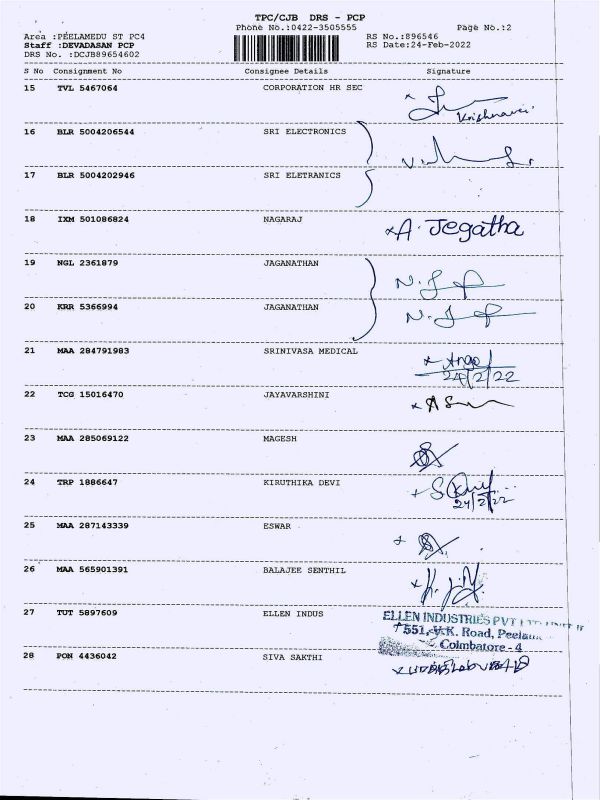 TPC/CJB DRS - PCP
Phone No.:0422-3505555
Page No.:2
Area :PEELAMEDU ST PC4
RS No.:896546
Staff :DEVADASAN PCP
RS Date:24-Feb-2022
DRS No. :DCJB89654602
S No Consignment No Consignee Details Signature
15 TVL 5467064 CORPORATION HR SEC
16 BLR 5004206544 SRI ELECTRONICS
17 BLR 5004202946 SRI ELETRANICS
18 IXM 501086824 NAGARAJ A. Jegatha
19 NGL 2361879 JAGANATHAN
20 KRR 5366994 JAGANATHAN
21 MAA 284791983 SRINIVASA MEDICAL
24/2/22
22 TCG 15016470 JAYAVARSHINI
23 MAA 285069122 MAGESH
24 TRP 1886647 KIRUTHIKA DEVI
24/2/22
25 MAA 287143339 ESWAR
26 MAA 565901391 BALAJEE SENTHIL
27 TUT 5897609 ELLEN INDUS ELLEN INDUSTRIES PVT
551, V.K. Road,
Coimbatore - 4
28 PON 4436042 SIVA SAKTHI